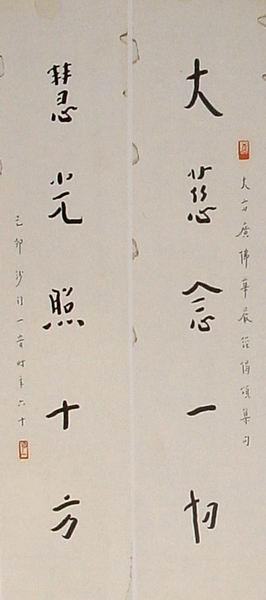 大方廣佛華嚴經偈頌集句
大慈念一切
慧光照十方
己卯沙門一音時年六十